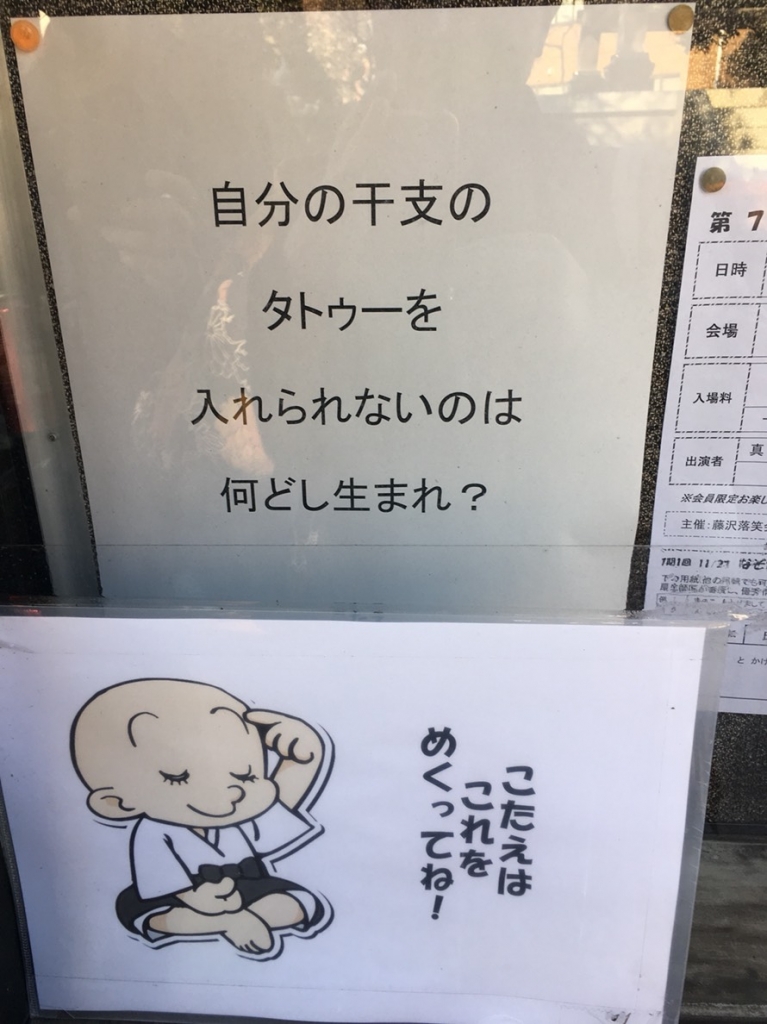 自分の干支の
タトゥーを
入れられないのは
何どし生まれ？
こたえは
これを
めくってね！
第 7
日時
会場
入場料
出演者 真
※会員限定お楽し
主催：藤沢落笑
11/27 なぞ
と かけ